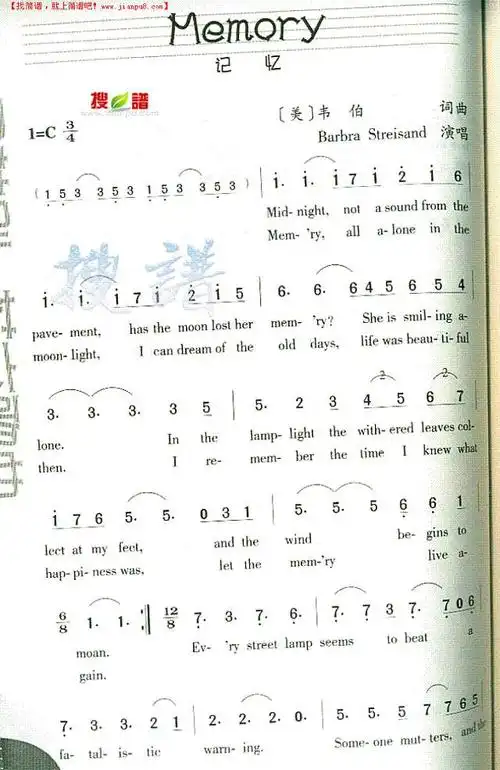 【找简谱,就上简谱吧! www.jianpu8.com】
Memory
记 忆
搜谱
1=C 3/4
〔美〕韦 伯 词曲
Barbra Streisand 演唱
( 1 5 3 3 5 3 1 5 3 3 5 3 ) | i. i. i 7 i 2 i 6
Mid-night, not a sound from the
Mem-'ry, all a-lone in the
i. i. i 7 i 2 i 5 | 6. 6. 6 4 5 6 5 4
pave-ment, has the moon lost her mem-'ry? She is smil-ing a-
moon-light, I can dream of the old days, life was beau-ti-ful
搜谱
3. 3. 3. 3 5 | 5. 2 3 4 5 6 7
lone. In the lamp-light the with-ered leaves col-
then. I re-mem-ber the time I knew what
i 7 6 5. 5. 0 3 1 | 5. 5. 5 6 6 1
lect at my feet, and the wind be-gins to
hap-pi-ness was, let the mem-'ry live a-
6/8 1. 1. :‖ 12/8 7. 3. 7. 6. | 7. 7 3 7. 7 0 6
moan. Ev-'ry street lamp seems to beat a
gain.
7. 3. 3. 2 1 | 2. 2. 2. 0. | 5. 5. 5 7 7 6 5
fa-tal-is-tic warn-ing. Some-one mut-ters, and the